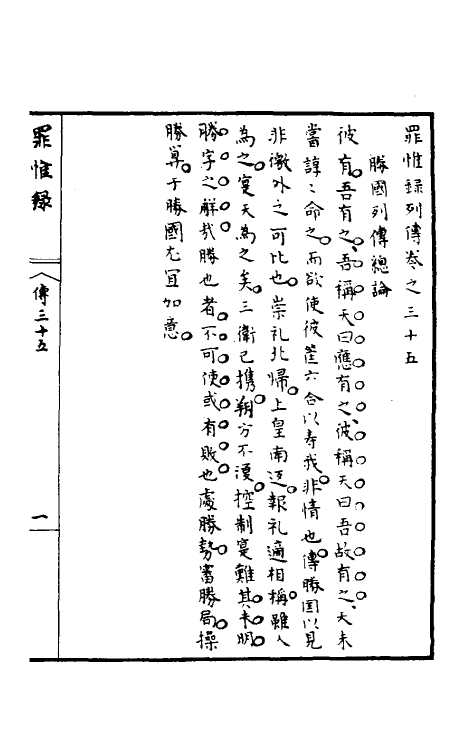 罪惟録列傳卷之三十五
勝國列傳總論
彼有吾有之吾稱天曰應有之彼稱天曰吾故有之天未
嘗諄〻命之而欲使彼蓋六合以奉我非情也傳勝国以見
非徼外之可比也崇礼北帰上皇南迈報礼適相稱雖人
為之寔天為之矣三衛已携朔方不復控制寔難其未明
勝字之觧㢤勝也者不可使或有敗也處勝勢審勝局操
勝筭于勝國尤冝加意
罪惟録
傳三十五
一